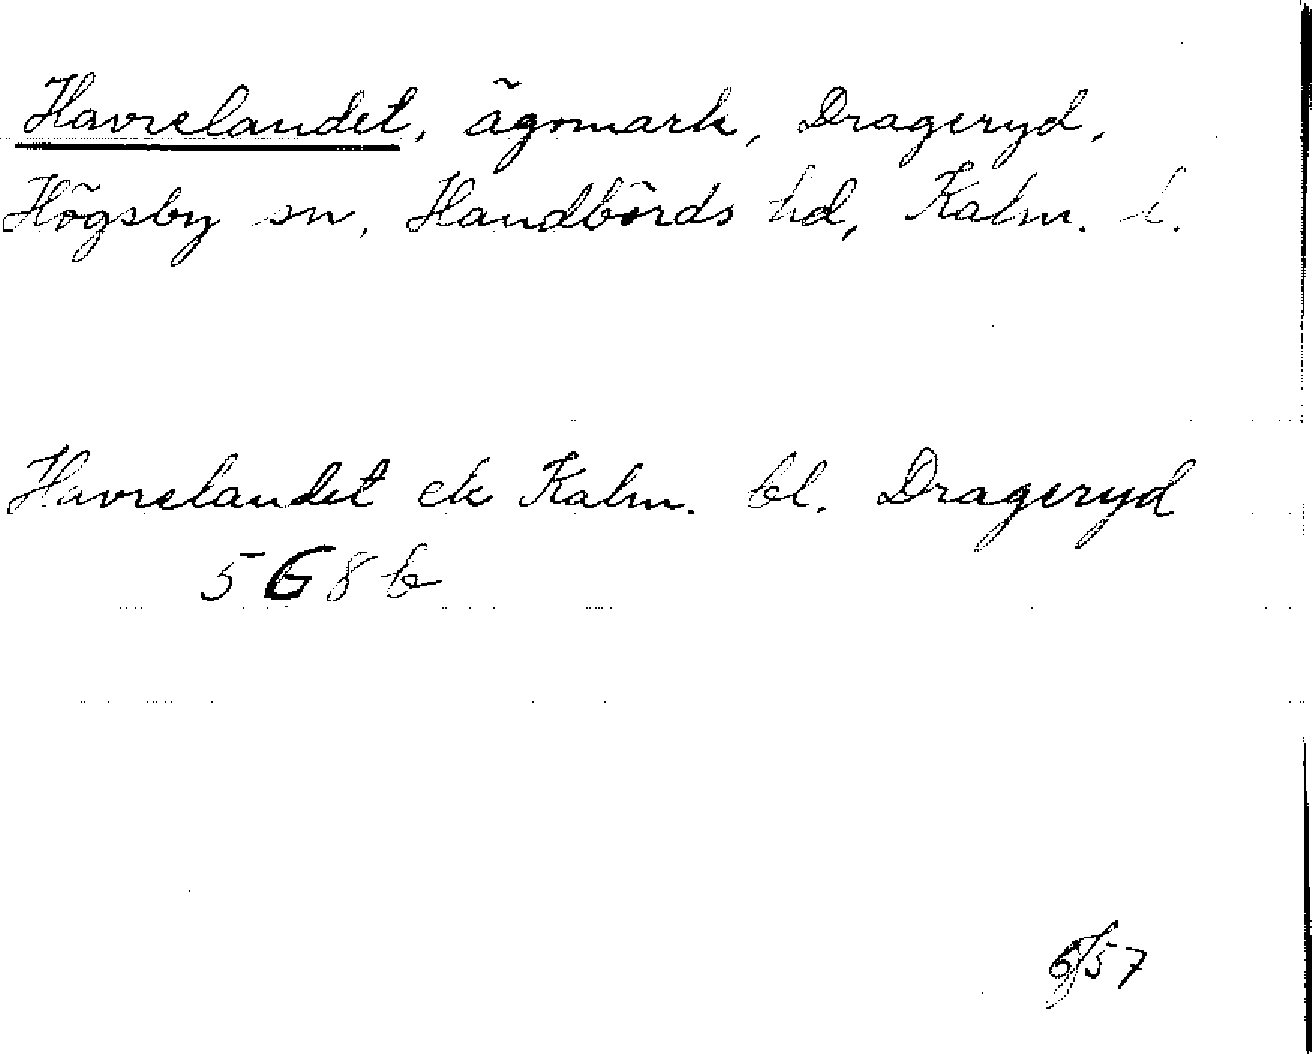 Havrelandet, ägomark, Drageryd,
Högsby sn, Handbörds hd, Kalm. l.
Havrelandet ek Kalm. bl. Drageryd
5 G 8 b
6/57